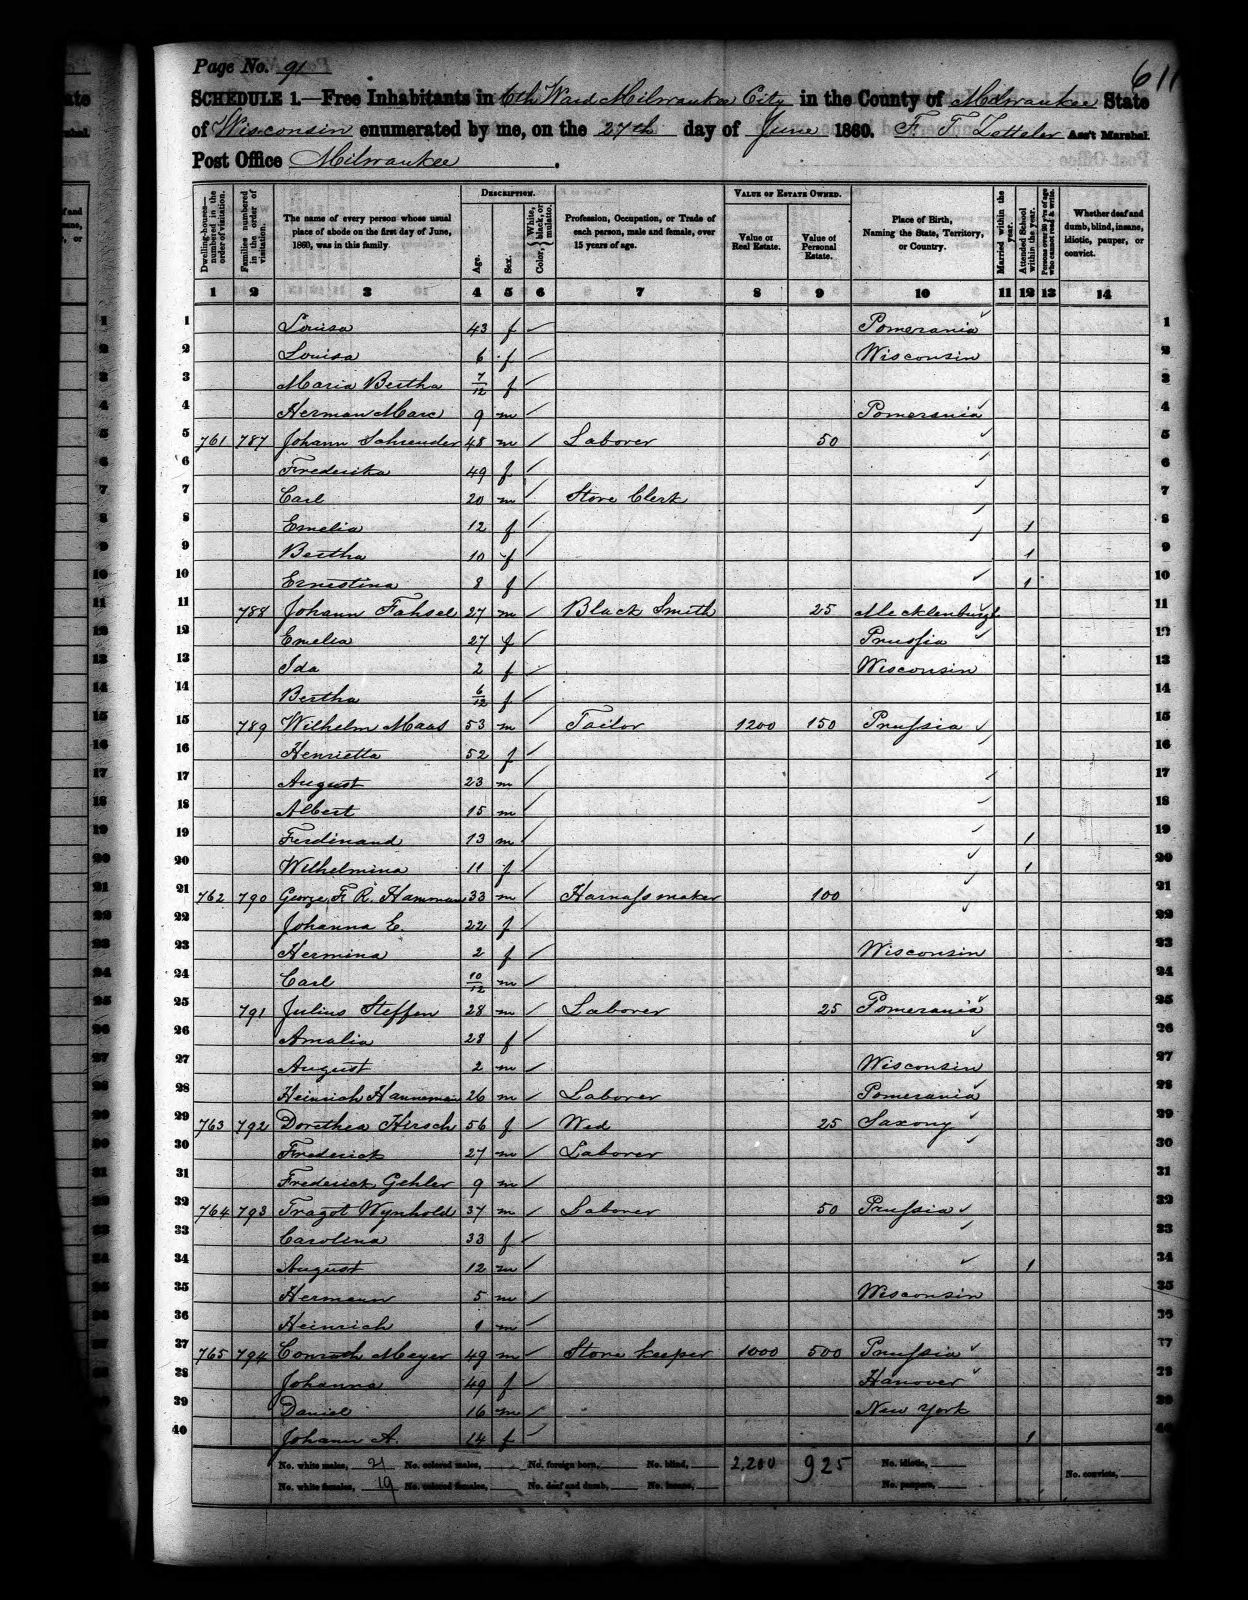 Page No. 91
611
SCHEDULE 1.—Free Inhabitants in 6th Ward Milwaukee City in the County of Milwaukee State
of Wisconsin enumerated by me, on the 27th day of June 1860. F. F. Zetteler Ass't Marshal.
Post Office Milwaukee.
Dwelling-houses—numbered in the order of visitation.
Families numbered in the order of visitation.
The name of every person whose usual place of abode on the first day of June, 1860, was in this family.
DESCRIPTION.
Age.
Sex.
Color, {White, black, or mulatto.
Profession, Occupation, or Trade of each person, male and female, over 15 years of age.
VALUE OF ESTATE OWNED.
Value of Real Estate.
Value of Personal Estate.
Place of Birth, Naming the State, Territory, or Country.
Married within the year.
Attended School within the year.
Persons over 20 y'rs of age who cannot read & write.
Whether deaf and dumb, blind, insane, idiotic, pauper, or convict.
1 2 3 4 5 6 7 8 9 10 11 12 13 14
1 Louisa 43 f ✓ Pomerania ✓ 1
2 Louisa 6 f ✓ Wisconsin 2
3 Maria Bertha 7/12 f ✓ 3
4 Herman Marc 9 m ✓ Pomerania ✓ 4
5 761 787 Johann Schreuder 48 m ✓ Laborer 50 ✓ 5
6 Frederika 49 f ✓ ✓ 6
7 Carl 20 m ✓ Store Clerk ✓ 7
8 Emelia 12 f ✓ ✓ 1 8
9 Bertha 10 f ✓ ✓ 1 9
10 Ernestina 8 f ✓ ✓ 1 10
11 788 Johann Fahsel 27 m ✓ Black Smith 25 Mecklenburgh ✓ 11
12 Emelia 27 f ✓ Prussia ✓ 12
13 Ida 2 f ✓ Wisconsin 13
14 Bertha 6/12 f ✓ 14
15 789 Wilhelm Maas 53 m ✓ Tailor 1200 150 Prussia ✓ 15
16 Henrietta 52 f ✓ ✓ 16
17 August 23 m ✓ ✓ 17
18 Albert 15 m ✓ ✓ 18
19 Ferdinand 13 m ✓ ✓ 1 19
20 Wilhelmina 11 f ✓ ✓ 1 20
21 762 790 George F. R. Hamman 33 m ✓ Harnass maker 100 ✓ 21
22 Johanna E. 22 f ✓ ✓ 22
23 Hermina 2 f ✓ Wisconsin 23
24 Carl 10/12 m ✓ 24
25 791 Julius Steffen 28 m ✓ Laborer 25 Pomerania ✓ 25
26 Amalia 28 f ✓ ✓ 26
27 August 2 m ✓ Wisconsin 27
28 Heinrich Hanneman 26 m ✓ Laborer Pomerania ✓ 28
29 763 792 Dorethea Hirsch 56 f ✓ Wid 25 Saxony ✓ 29
30 Frederick 27 m ✓ Laborer ✓ 30
31 Frederick Gehler 9 m ✓ 31
32 764 793 Tragot Wynhold 37 m ✓ Laborer 50 Prussia ✓ 32
33 Carolina 33 f ✓ ✓ 33
34 August 12 m ✓ ✓ 1 34
35 Hermann 5 m ✓ Wisconsin 35
36 Heinrich 1 m ✓ 36
37 765 794 Conrath Meyer 49 m ✓ Store keeper 1000 500 Prussia ✓ 37
38 Johanna 49 f ✓ Hanover ✓ 38
39 Daniel 16 m ✓ New York 39
40 Johann A. 14 f ✓ 1 40
No. white males, 21 No. colored males, No. foreign born, No. blind, 2,200 925 No. idiotic,
No. white females, 19 No. colored females, No. deaf and dumb, No. insane, No. paupers, No. convicts,